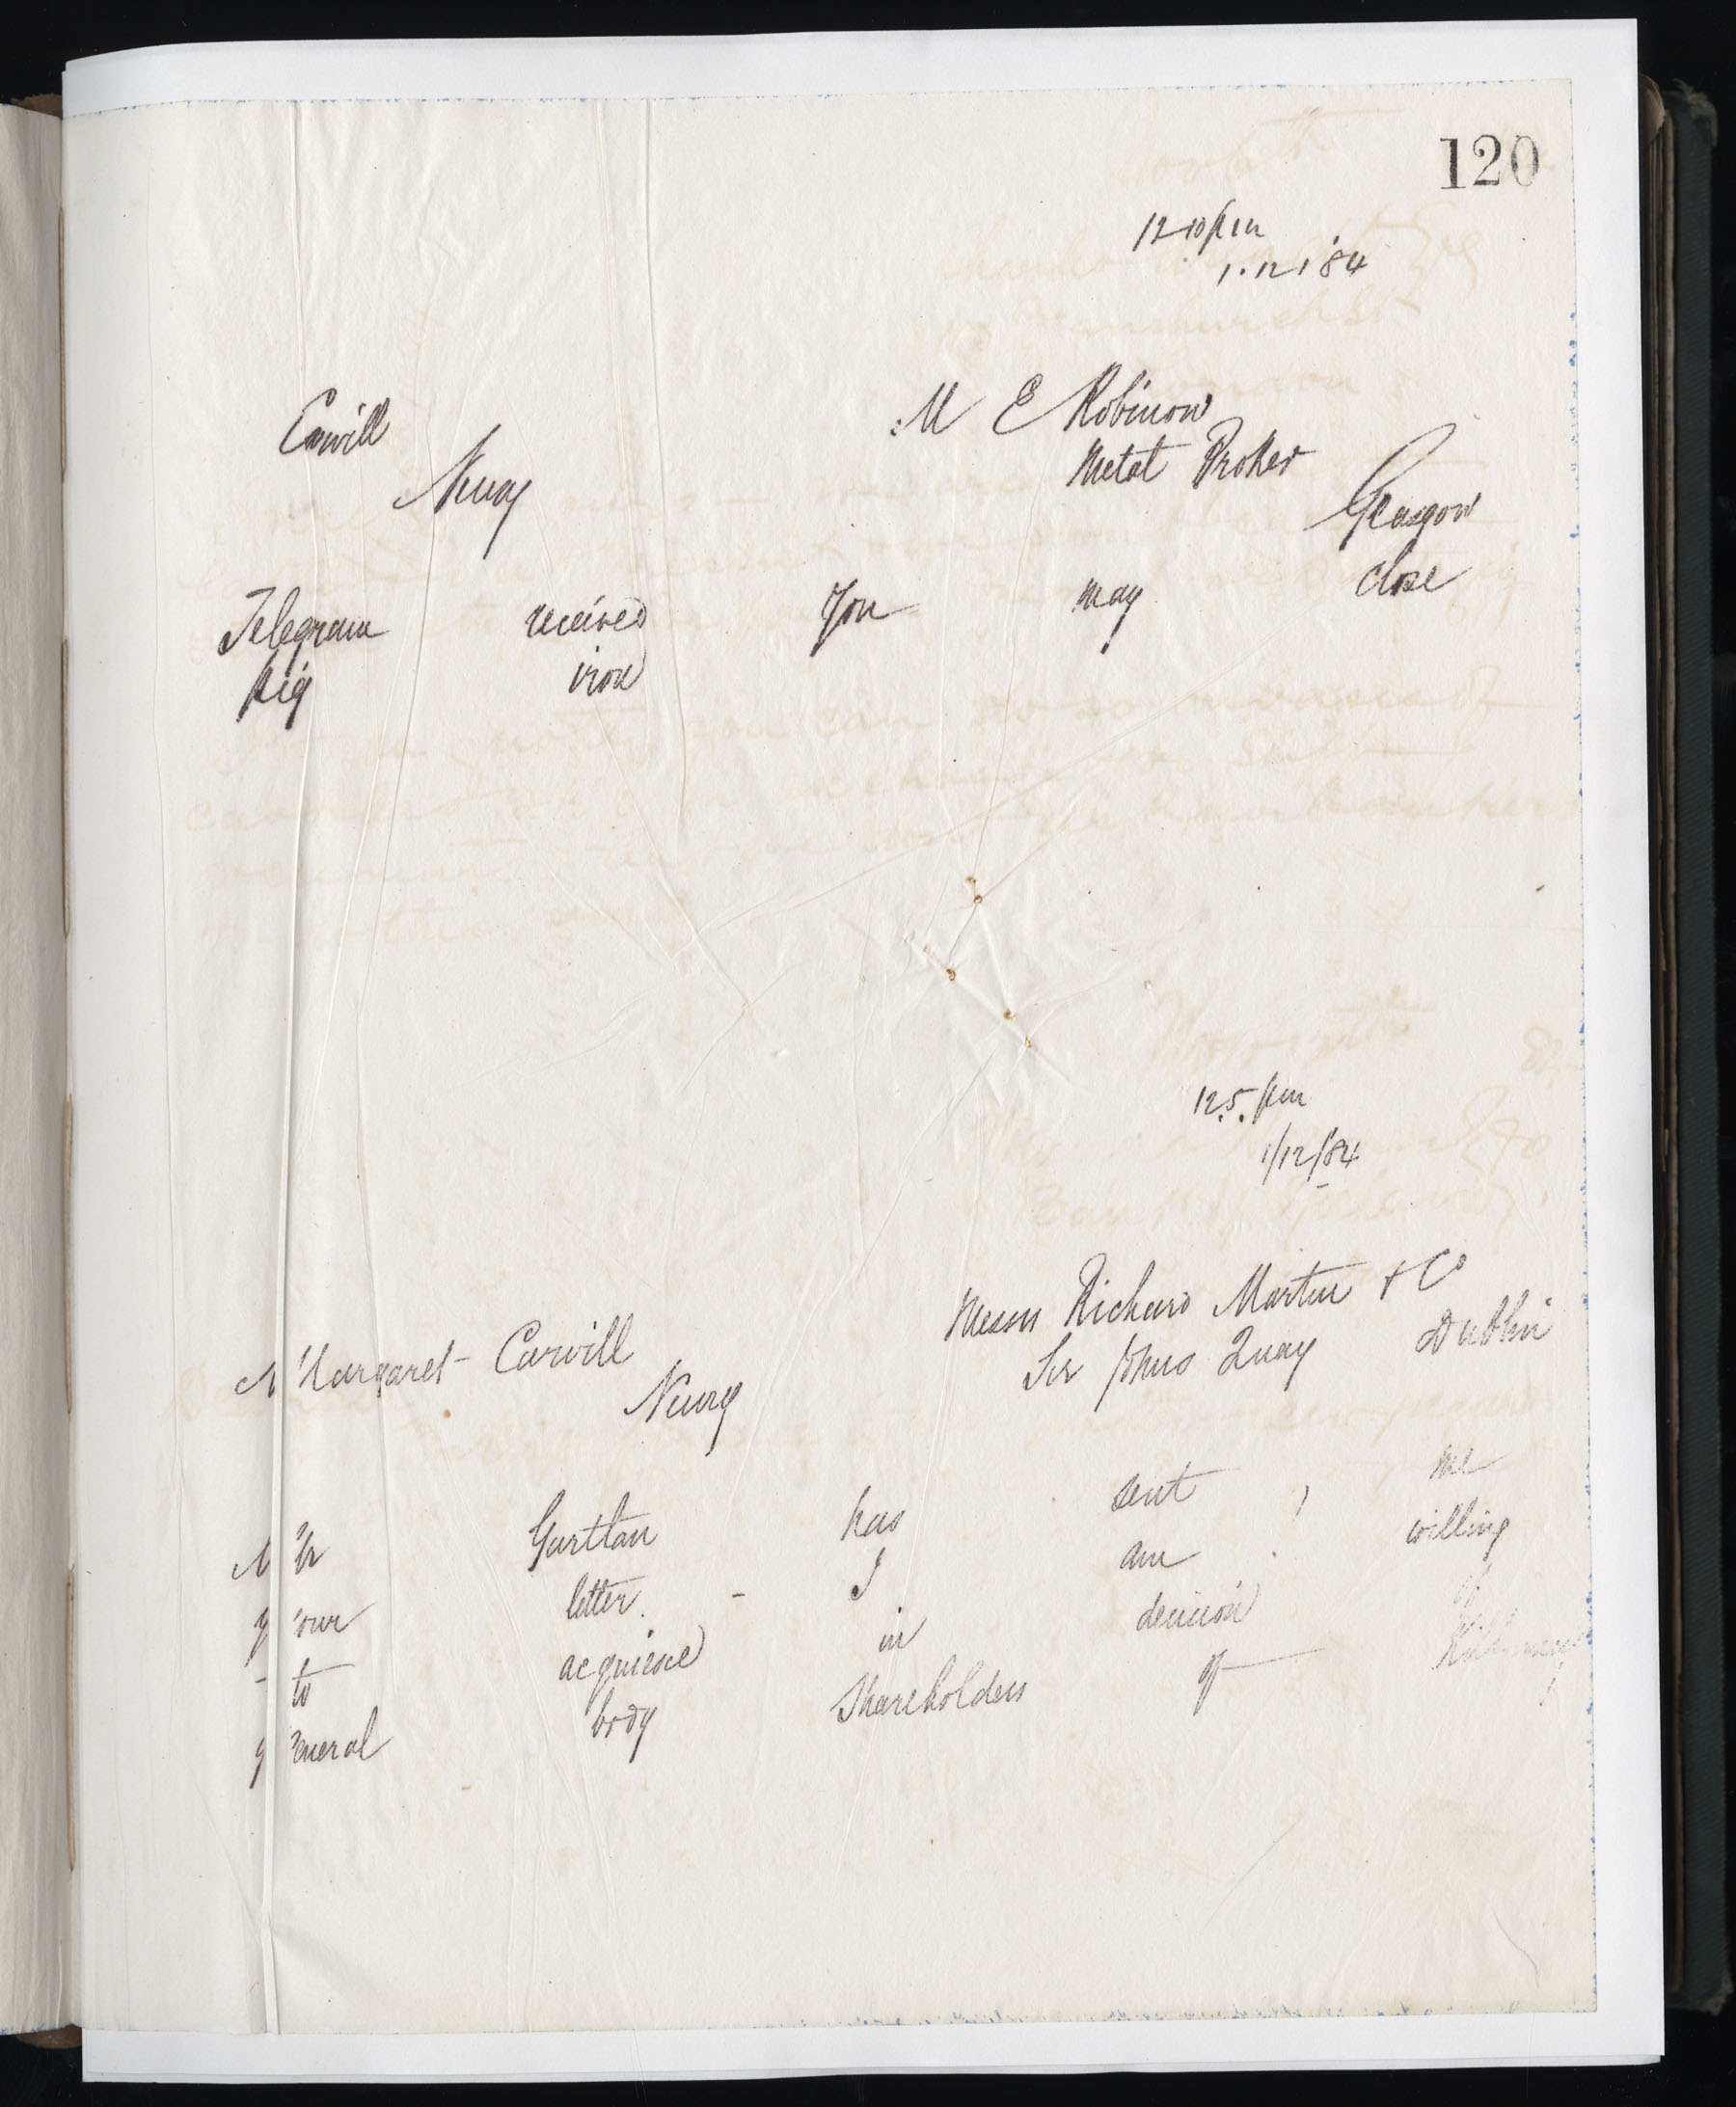 120
12.10 pm
1.12.84
Carvill
Newry
M E Robinow
Metal Broker
Glasgow
Telegram received You may close
pig iron
12.5. pm
1/12/84
Margaret Carvill
Newry
Messrs Richard Martin & Co
Sir Johns Quay Dublin
Mr Gartlan has sent me
your letter - I am willing
to acquiesce in decision of
general body Shareholders of